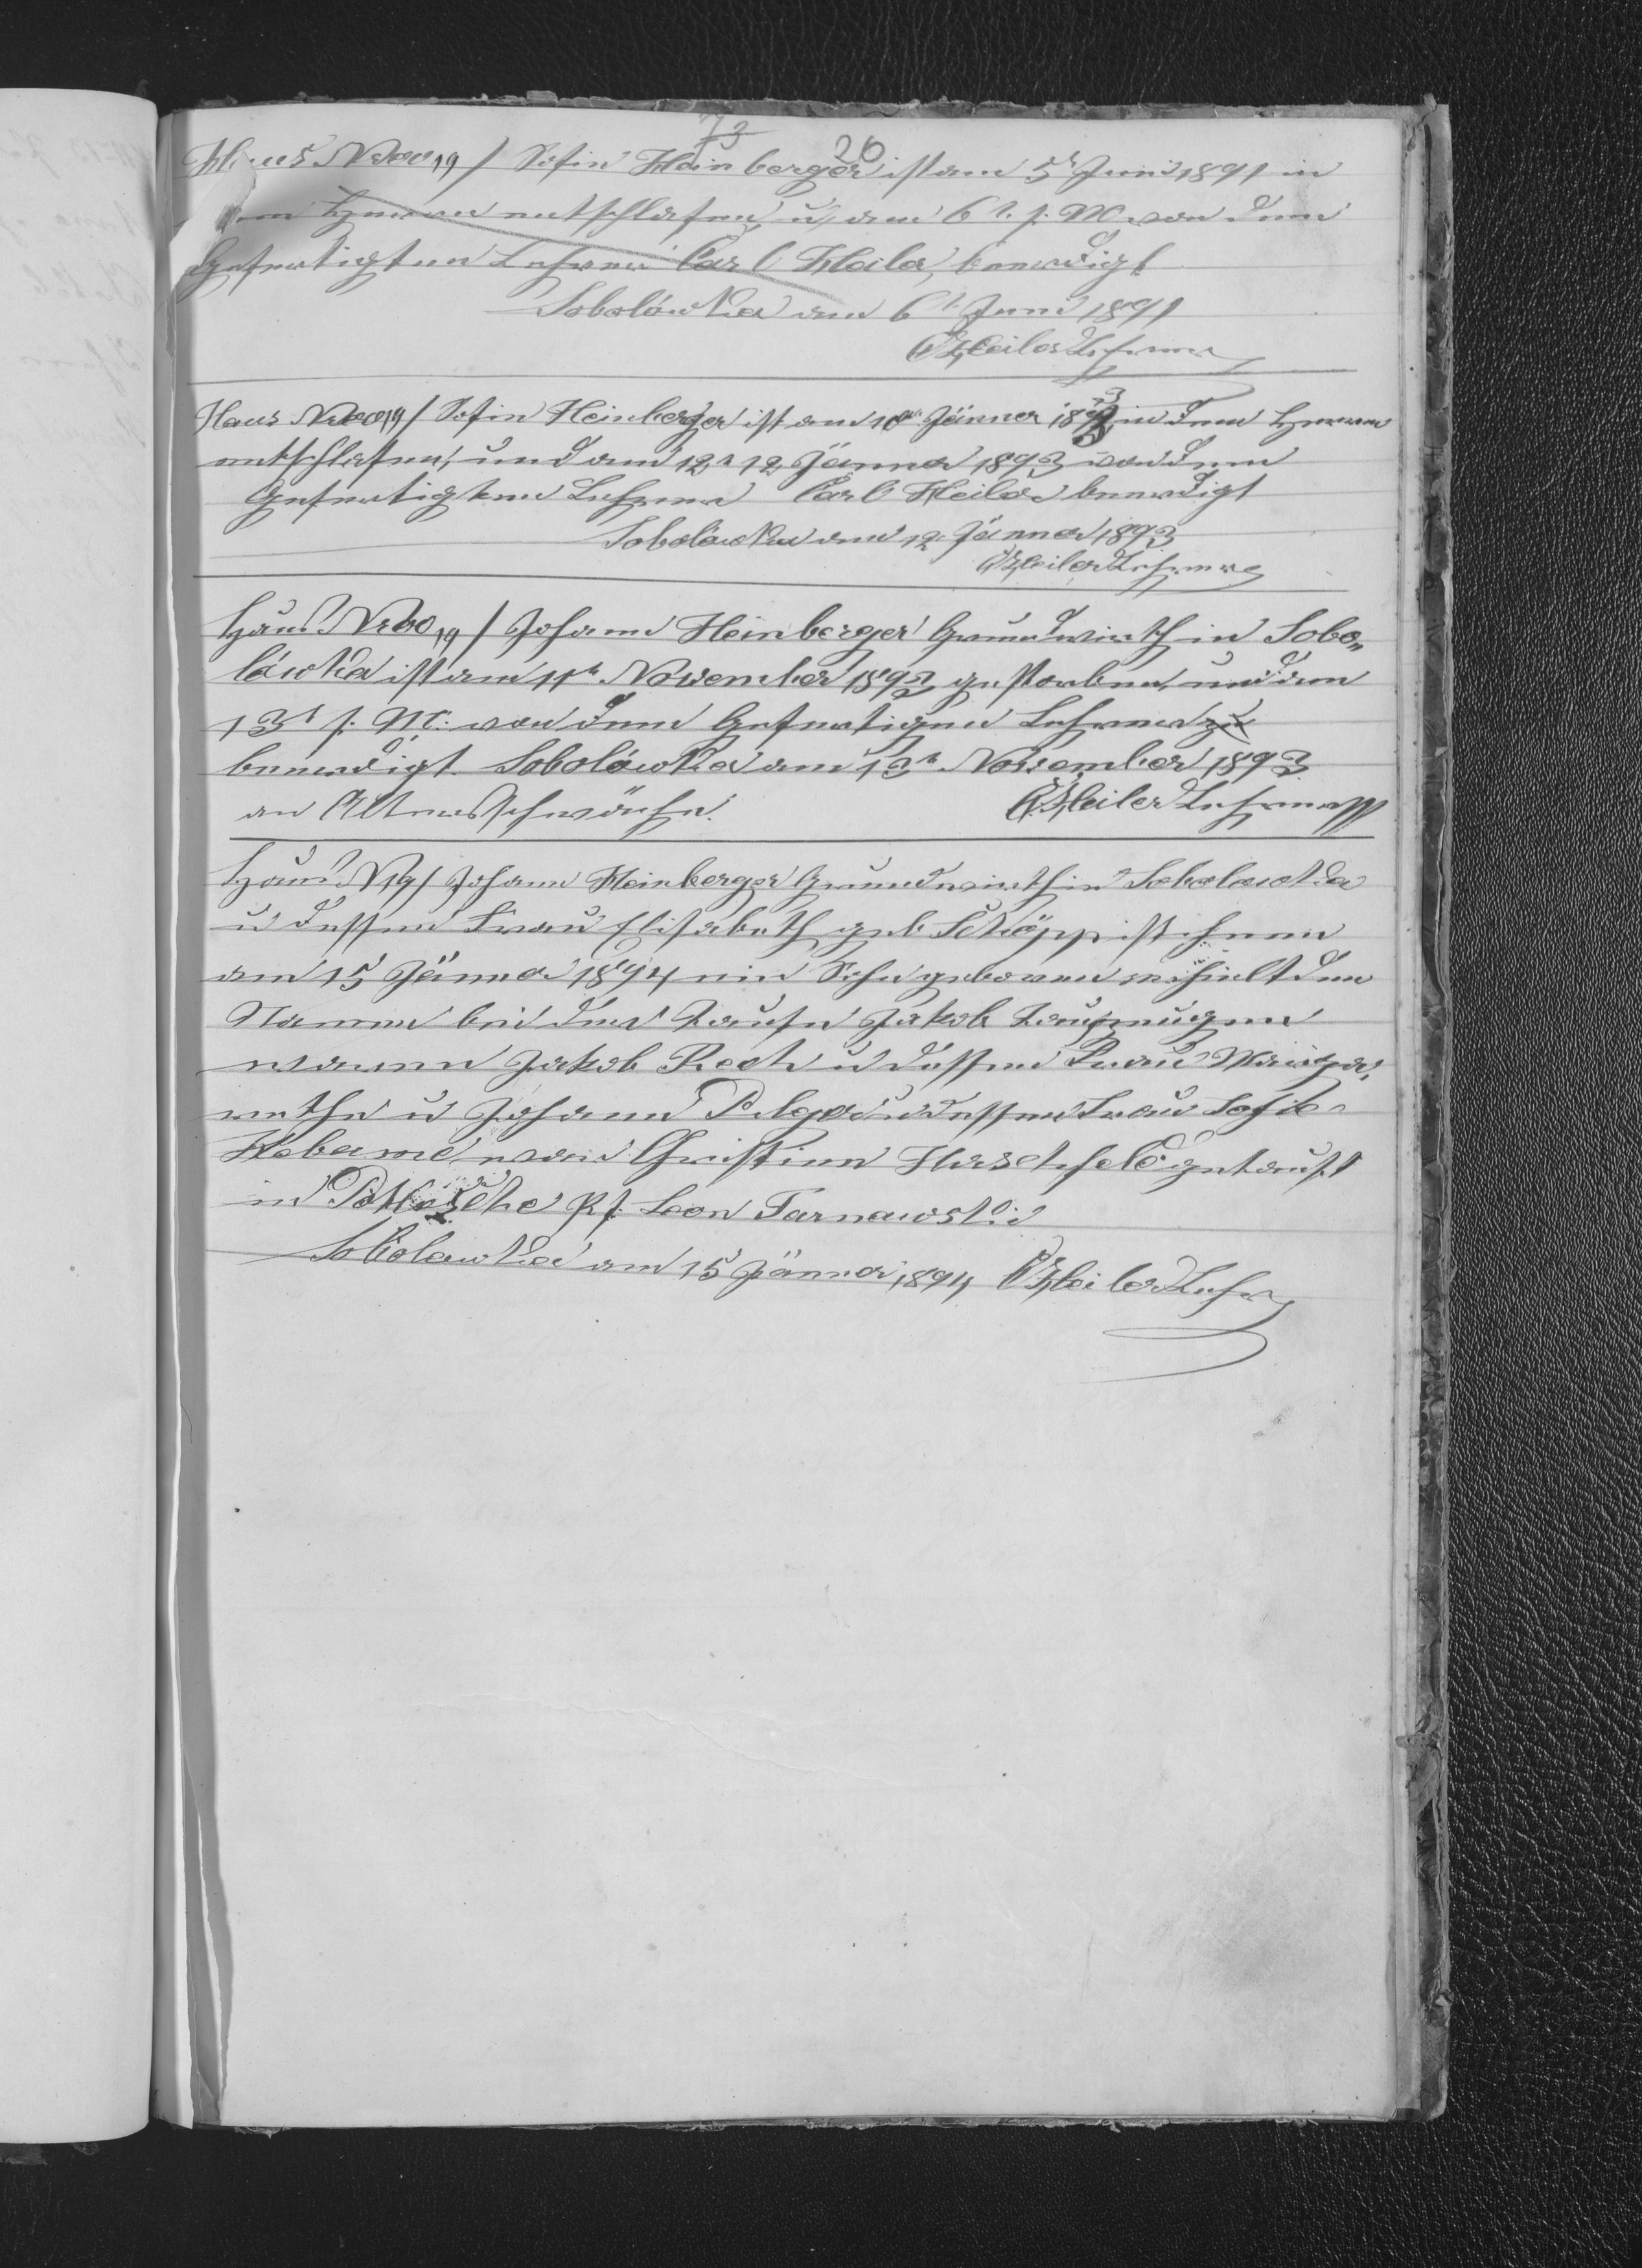 73
20
Haus Nro 19 / Sofin Heinberger ist am 5t Juni 1891 in
dem Herren entschlafen, u, am 6t. j. M. von dem
Gefertigten Lehrer Carl Heiler, beerdigt
Sobolówka am 6t Juni 1891
C Heiler Lehrer
Haus Nro 19 / Sofin Heinberger ist am 10ten Jänner 1893 in dem Herren
entschlafen, und am 12t 12 Jänner 1893 von dem
Gefertigten Lehrer Carl Heiler beerdigt
Sobolówka am 12 Jänner 1893
C Heiler Lehrer
Haus Nro 19 / Johann Heinberger Grundwirth in Sobo„
lówka ist am 11t November 1893 gestorben, und am
13t j. M. von dem Gefertigen Lehrer
beerdigt. Sobolówka am 13t November 1893
an Altersschwäche.
C. Heiler Lehrer
Haus N 19 / Johann Heinberger Grundwirth in Sobolowka
u dessen Frau Elisabeth geb Schöpp ist ihnen
am 15 Jänner 1894 ein Sohn geboren erhielt den
Namen bei der Taufe Jakob Taufzeugen
waren Jakob Rech u dessen Frau Marga„
rethe u Johann Pelger u dessen Frau Sofie
Hebame war Christinn Hirschfeld getauft
in R. k. Leon Tarnawski
Sobolowka am 15 Jänner 1894 C Heiler Lehrer